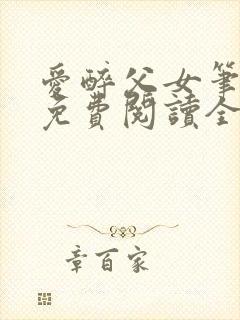 愛醉父女筆
免費閱讀全
章百家